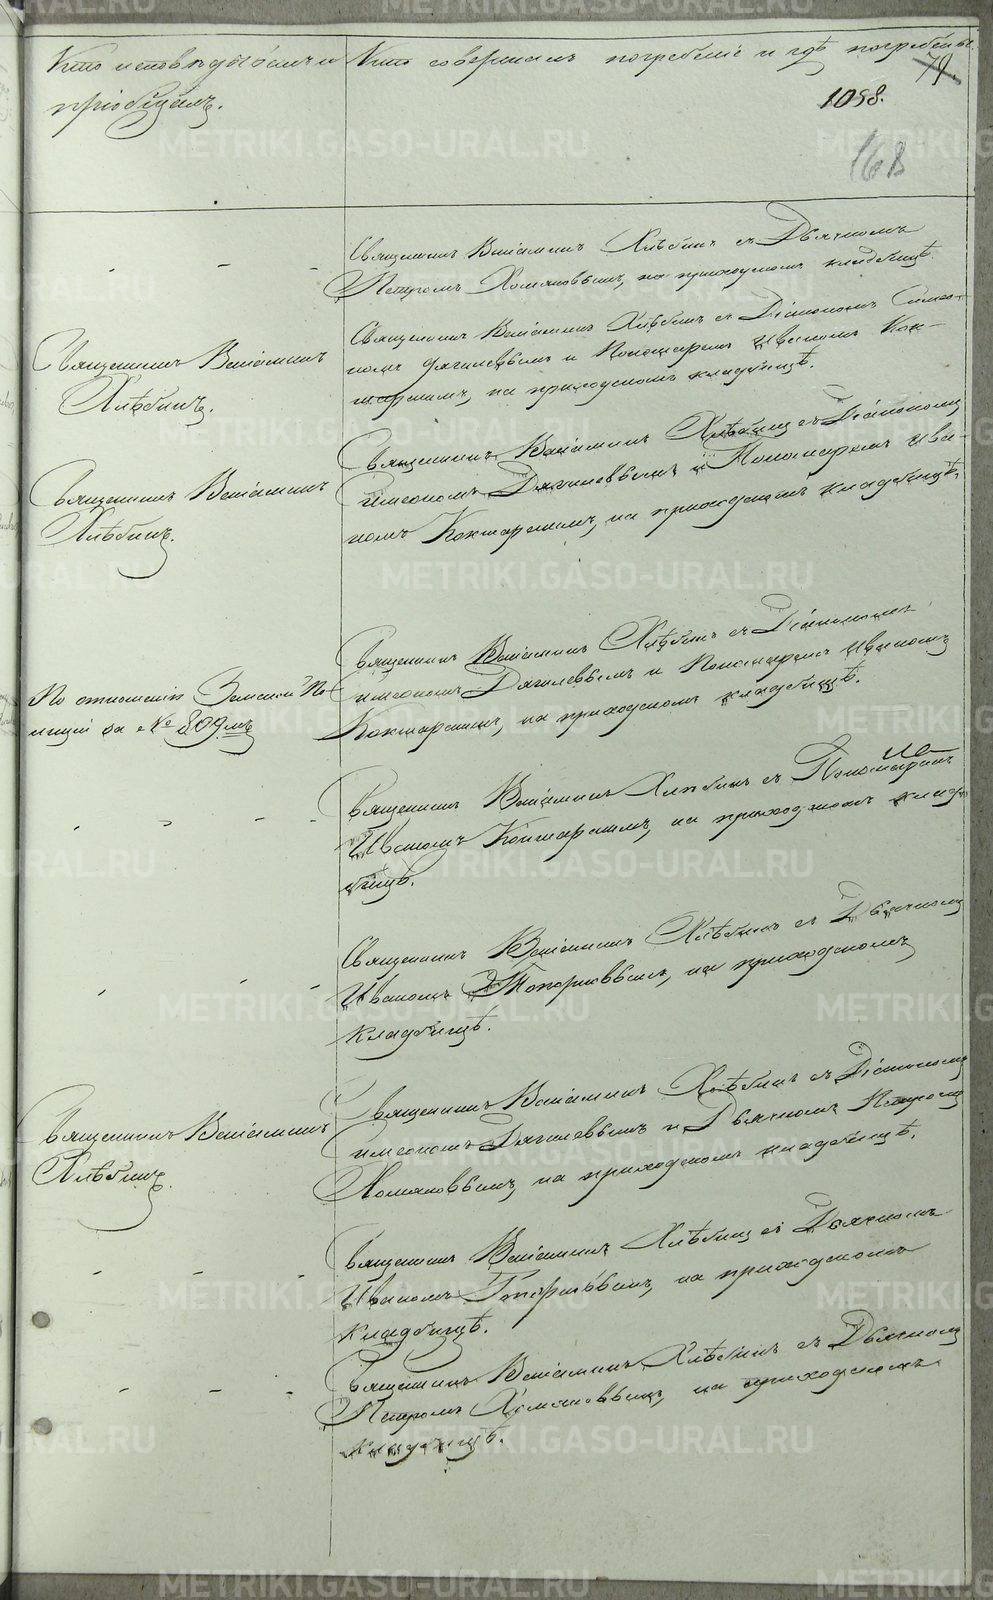 Кто исповѣдывалъ и
пріобщалъ.
Кто совершалъ погребеніе и гдѣ погребены.
79.
1098.
168
Священникъ Веніаминъ Хлѣбинъ съ Дьячкомъ
Петромъ Хомяковымъ, на приходскомъ кладбищѣ.
Священникъ Веніаминъ
Хлѣбинъ.
Священникъ Веніаминъ Хлѣбинъ съ Діакономъ Симео-
номъ Дягилевымъ и Пономаремъ Иваномъ Кок-
шарскимъ, на приходскомъ кладбищѣ.
Священникъ Веніаминъ
Хлѣбинъ.
Священникъ Веніаминъ Хлѣбинъ съ Діакономъ
Симеономъ Дягилевымъ и Пономаремъ Ива-
номъ Кокшарскимъ, на приходскомъ кладбищѣ.
По отношенію Земской По-
лиціи за № 809мъ
Священникъ Веніаминъ Хлѣбинъ съ Діакономъ
Симеономъ Дягилевымъ и Пономаремъ Иваномъ
Кокшарскимъ, на приходскомъ кладбищѣ.
Священникъ Веніаминъ Хлѣбинъ съ Пономаремъ
Иваномъ Кокшарскимъ, на приходскомъ клад-
бищѣ.
Священникъ Веніаминъ Хлѣбинъ съ Дьячкомъ
Иваномъ Топорковымъ, на приходскомъ
кладбищѣ.
Священникъ Веніаминъ
Хлѣбинъ.
Священникъ Веніаминъ Хлѣбинъ съ Діакономъ
Симеономъ Дягилевымъ и Дьячкомъ Петромъ
Хомяковымъ, на приходскомъ кладбищѣ.
Священникъ Веніаминъ Хлѣбинъ съ Дьячкомъ
Иваномъ Топорковымъ, на приходскомъ
кладбищѣ.
Священникъ Веніаминъ Хлѣбинъ съ Дьячкомъ
Петромъ Хомяковымъ, на приходскомъ
кладбищѣ.
METRIKI.GASO-URAL.RU